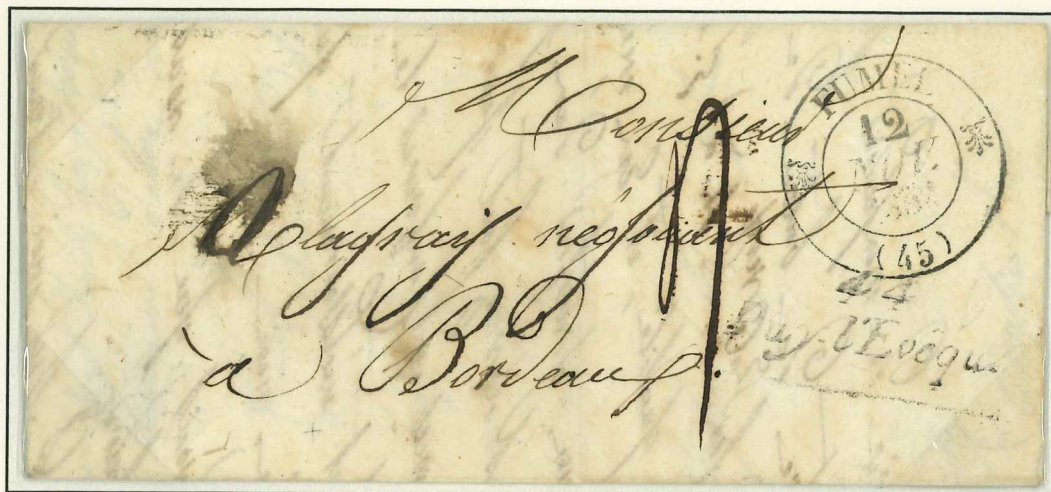 Monsieur
négociant
à Bordeaux.
FUMEL
12
NOV.
(45)
44
Puy-l'Evêque